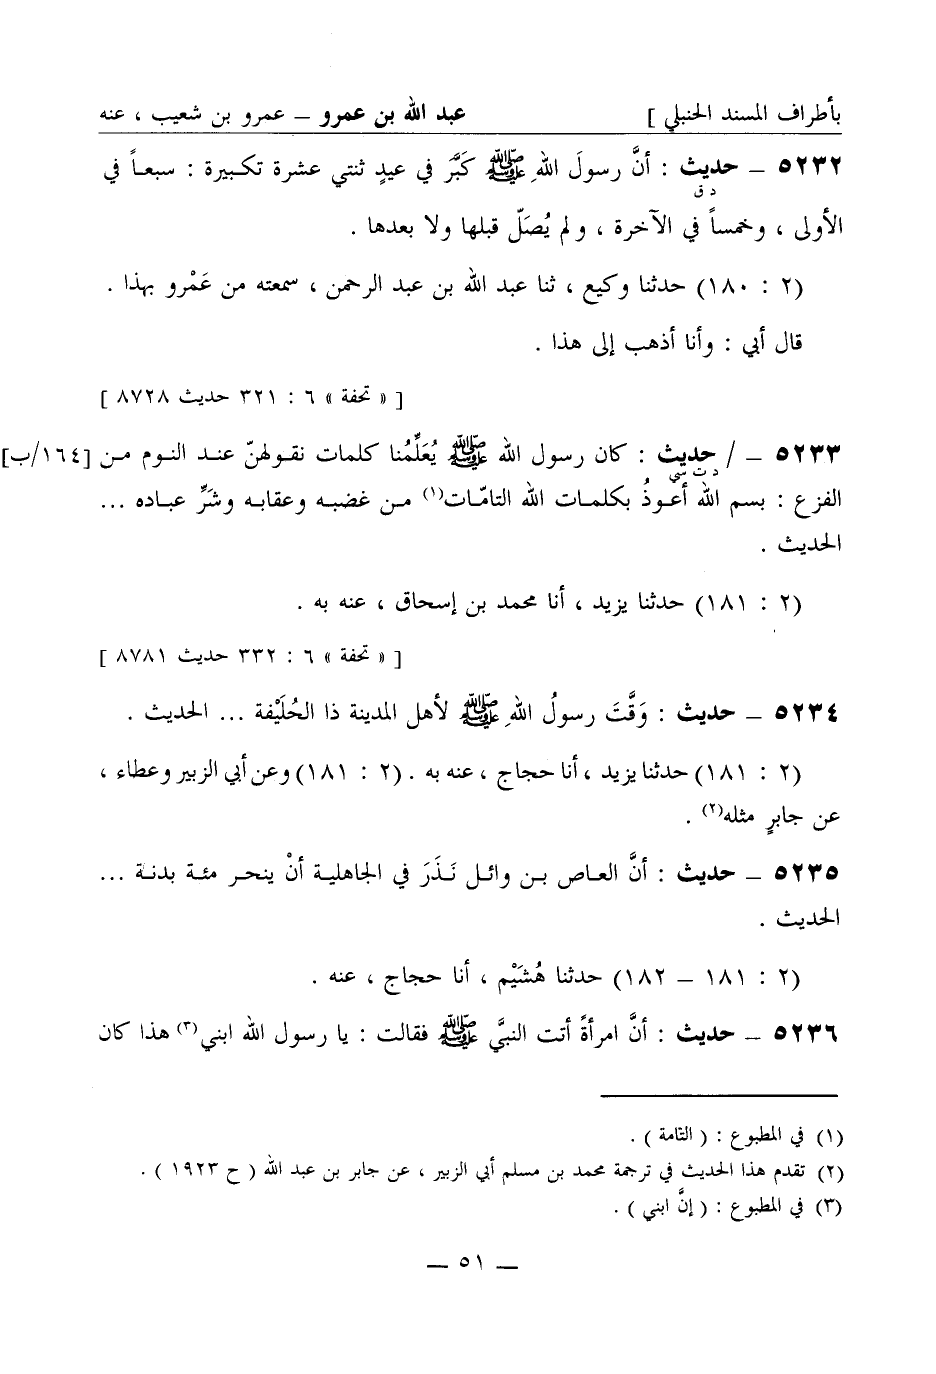 بأطراف المسند الحنبلي ] عبد الله بن عمرو – عمرو بن شعيب ، عنه
٥٢٣٢ – حديث : أنَّ رسولَ اللهِ ﷺ كَبَّرَ في عيدٍ ثنتي عشرة تكبيرة : سبعاً في
د ق
الأولى ، وخمساً في الآخرة ، ولم يُصَلّ قبلها ولا بعدها .
(٢ : ١٨٠) حدثنا وكيع ، ثنا عبد الله بن عبد الرحمن ، سمعته من عَمْرو بهذا .
قال أبي : وأنا أذهب إلى هذا .
[ « تحفة » ٦ : ٣٢١ حديث ٨٧٢٨ ]
٥٢٣٣ – / حديث : كان رسول الله ﷺ يُعَلِّمُنا كلمات نقولهنّ عند النوم من [١٦٤/ب]
د ت سي
الفزع : بسم الله أعوذُ بكلمات الله التامّات(١) من غضبه وعقابه وشَرِّ عباده ...
الحديث .
(٢ : ١٨١) حدثنا يزيد ، أنا محمد بن إسحاق ، عنه به .
[ « تحفة » ٦ : ٣٣٢ حديث ٨٧٨١ ]
٥٢٣٤ – حديث : وَقَّتَ رسولُ اللهِ ﷺ لأهل المدينة ذا الحُلَيْفة ... الحديث .
(٢ : ١٨١) حدثنا يزيد ، أنا حجاج ، عنه به . (٢ : ١٨١) وعن أبي الزبير وعطاء ،
عن جابرٍ مثله(٢) .
٥٢٣٥ – حديث : أنَّ العاص بن وائل نَذَرَ في الجاهلية أنْ ينحر مئة بدنة ...
الحديث .
(٢ : ١٨١ – ١٨٢) حدثنا هُشَيْم ، أنا حجاج ، عنه .
٥٢٣٦ – حديث : أنَّ امرأةً أتت النبيَّ ﷺ فقالت : يا رسول الله ابني(٣) هذا كان
(١) في المطبوع : ( التّامة ) .
(٢) تقدم هذا الحديث في ترجمة محمد بن مسلم أبي الزبير ، عن جابر بن عبد الله ( ح ١٩٢٣ ) .
(٣) في المطبوع : ( إنَّ ابني ) .
– ٥١ –